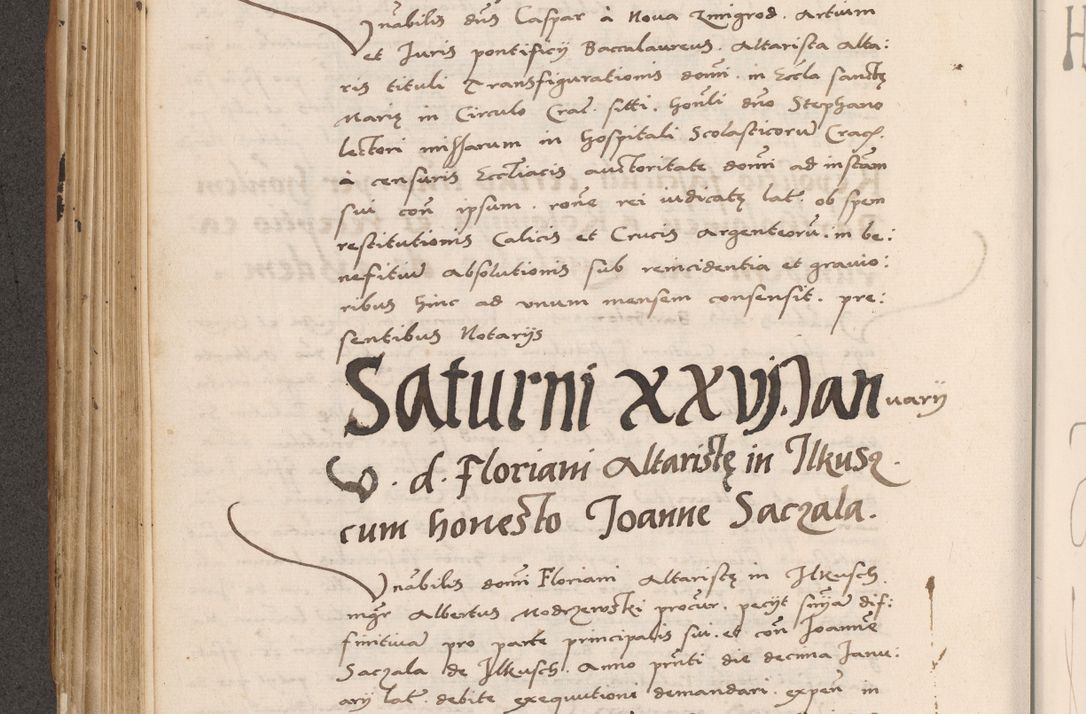 Vnabilis dns Caspar à Nova Zmigrod. Artium
et Juris pontificij Baccalaureus. Altarista Alta:
ris tituli Transfigurationis domi. in Eccla sanctę
Marię in Circulo Crac. sitti. honli dno Stephano
lectori missarum in hospitali Scolasticorum Crac.
à censuris Eccliacis auctoritate domi ad instam
sui con ipsum. rone rei iudicatę lat. ob spem
restitutionis Calicis et Crucis Argenteorū. in be:
nefitium Absolutionis sub reincidentia et gravio:
ribus hinc ad unum mensem consensit. pre:
sentibus Notarijs
Saturni XXVJ. Januarij
V. d. Floriani Altaristę in Ilkusz.
cum honesto Joanne Saczala.
Vnabilis domi Floriani Altaristę in Ilkusch.
mgr Albertus Modrzewski procur. pecijt sniam dif:
finitivam pro parte principalis sui. et con Joannē
Saczala de Ilkusch. Anno pnti die decima Janu:
arij lat. debite exequutioni demandari. expen in